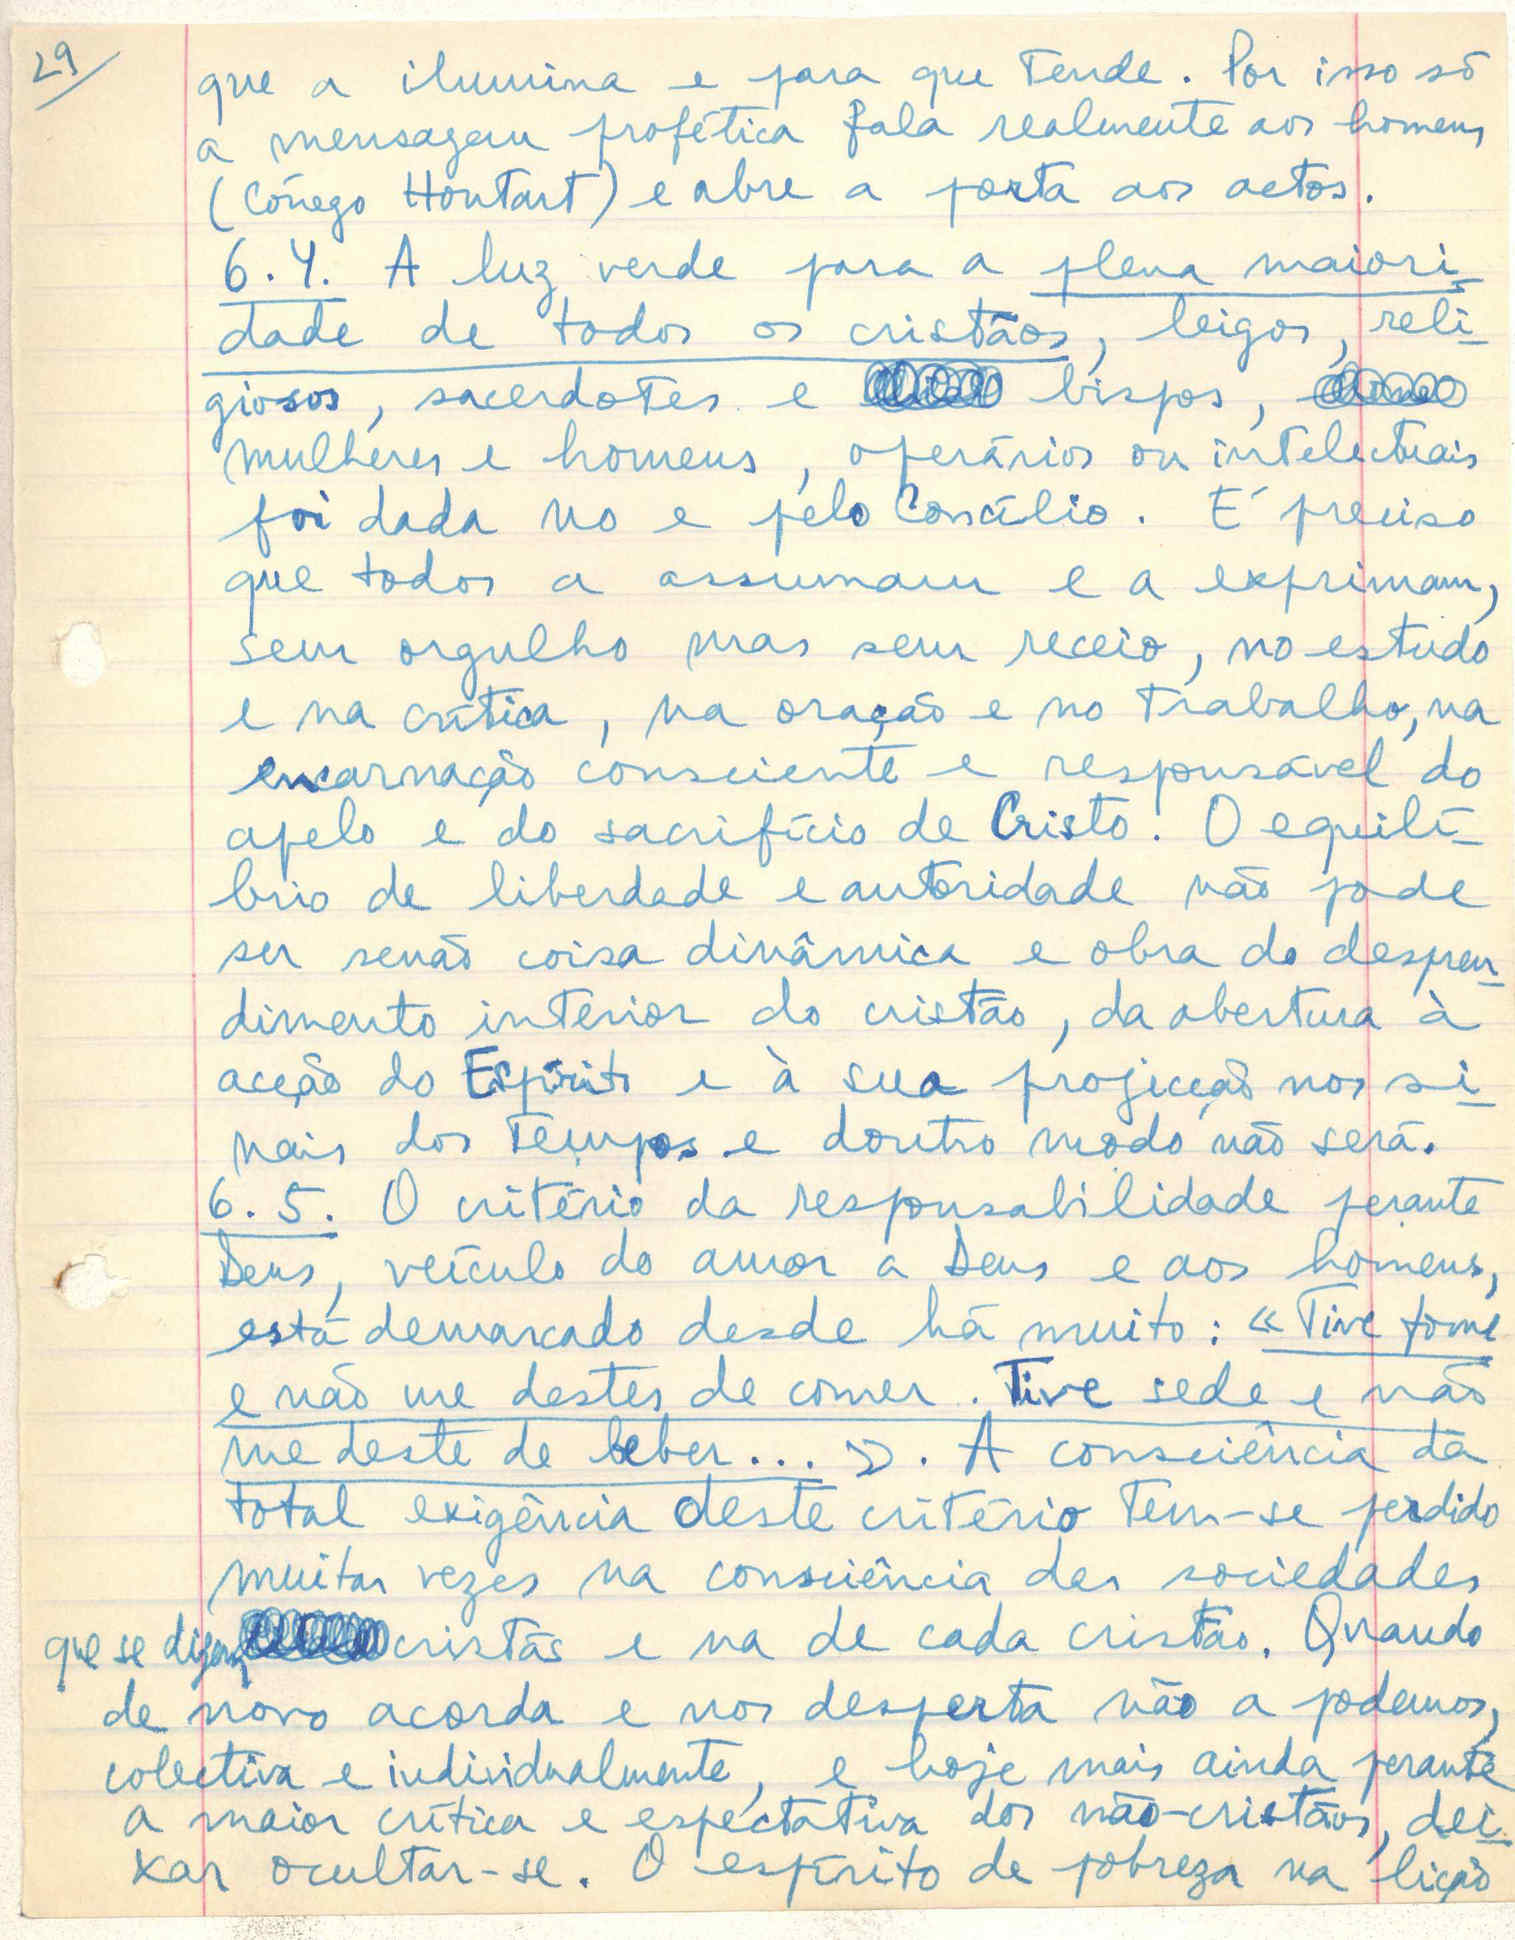 29
que a ilumina e para que tende. Por isso só
a mensagem profética fala realmente aos homens
(Cónego Houtart) e abre a porta aos actos.
6.4. A luz verde para a plena maiori-
dade de todos os cristãos, leigos, reli-
giosos, sacerdotes e bispos,
mulheres e homens, operários ou intelectuais
foi dada no e pelo Concílio. É preciso
que todos a assumam e a exprimam,
sem orgulho mas sem receio, no estudo
e na crítica, na oração e no trabalho, na
encarnação consciente e responsável do
apelo e do sacrifício de Cristo. O equilí-
brio de liberdade e autoridade não pode
ser senão coisa dinâmica e obra do despren-
dimento interior do cristão, da abertura à
acção do Espírito e à sua projecção nos si-
nais dos tempos e doutro modo não será.
6.5. O critério da responsabilidade perante
Deus, veículo do amor a Deus e aos homens,
está demarcado desde há muito: «Tive fome
e não me destes de comer. Tive sede e não
me deste de beber...». A consciência da
total exigência deste critério tem-se perdido
muitas vezes na consciência das sociedades
que se dizem cristãs e na de cada cristão. Quando
de novo acorda e nos desperta não a podemos,
colectiva e individualmente, e hoje mais ainda perante
a maior crítica e espectativa dos não-cristãos, dei-
xar ocultar-se. O espírito de pobreza na lição